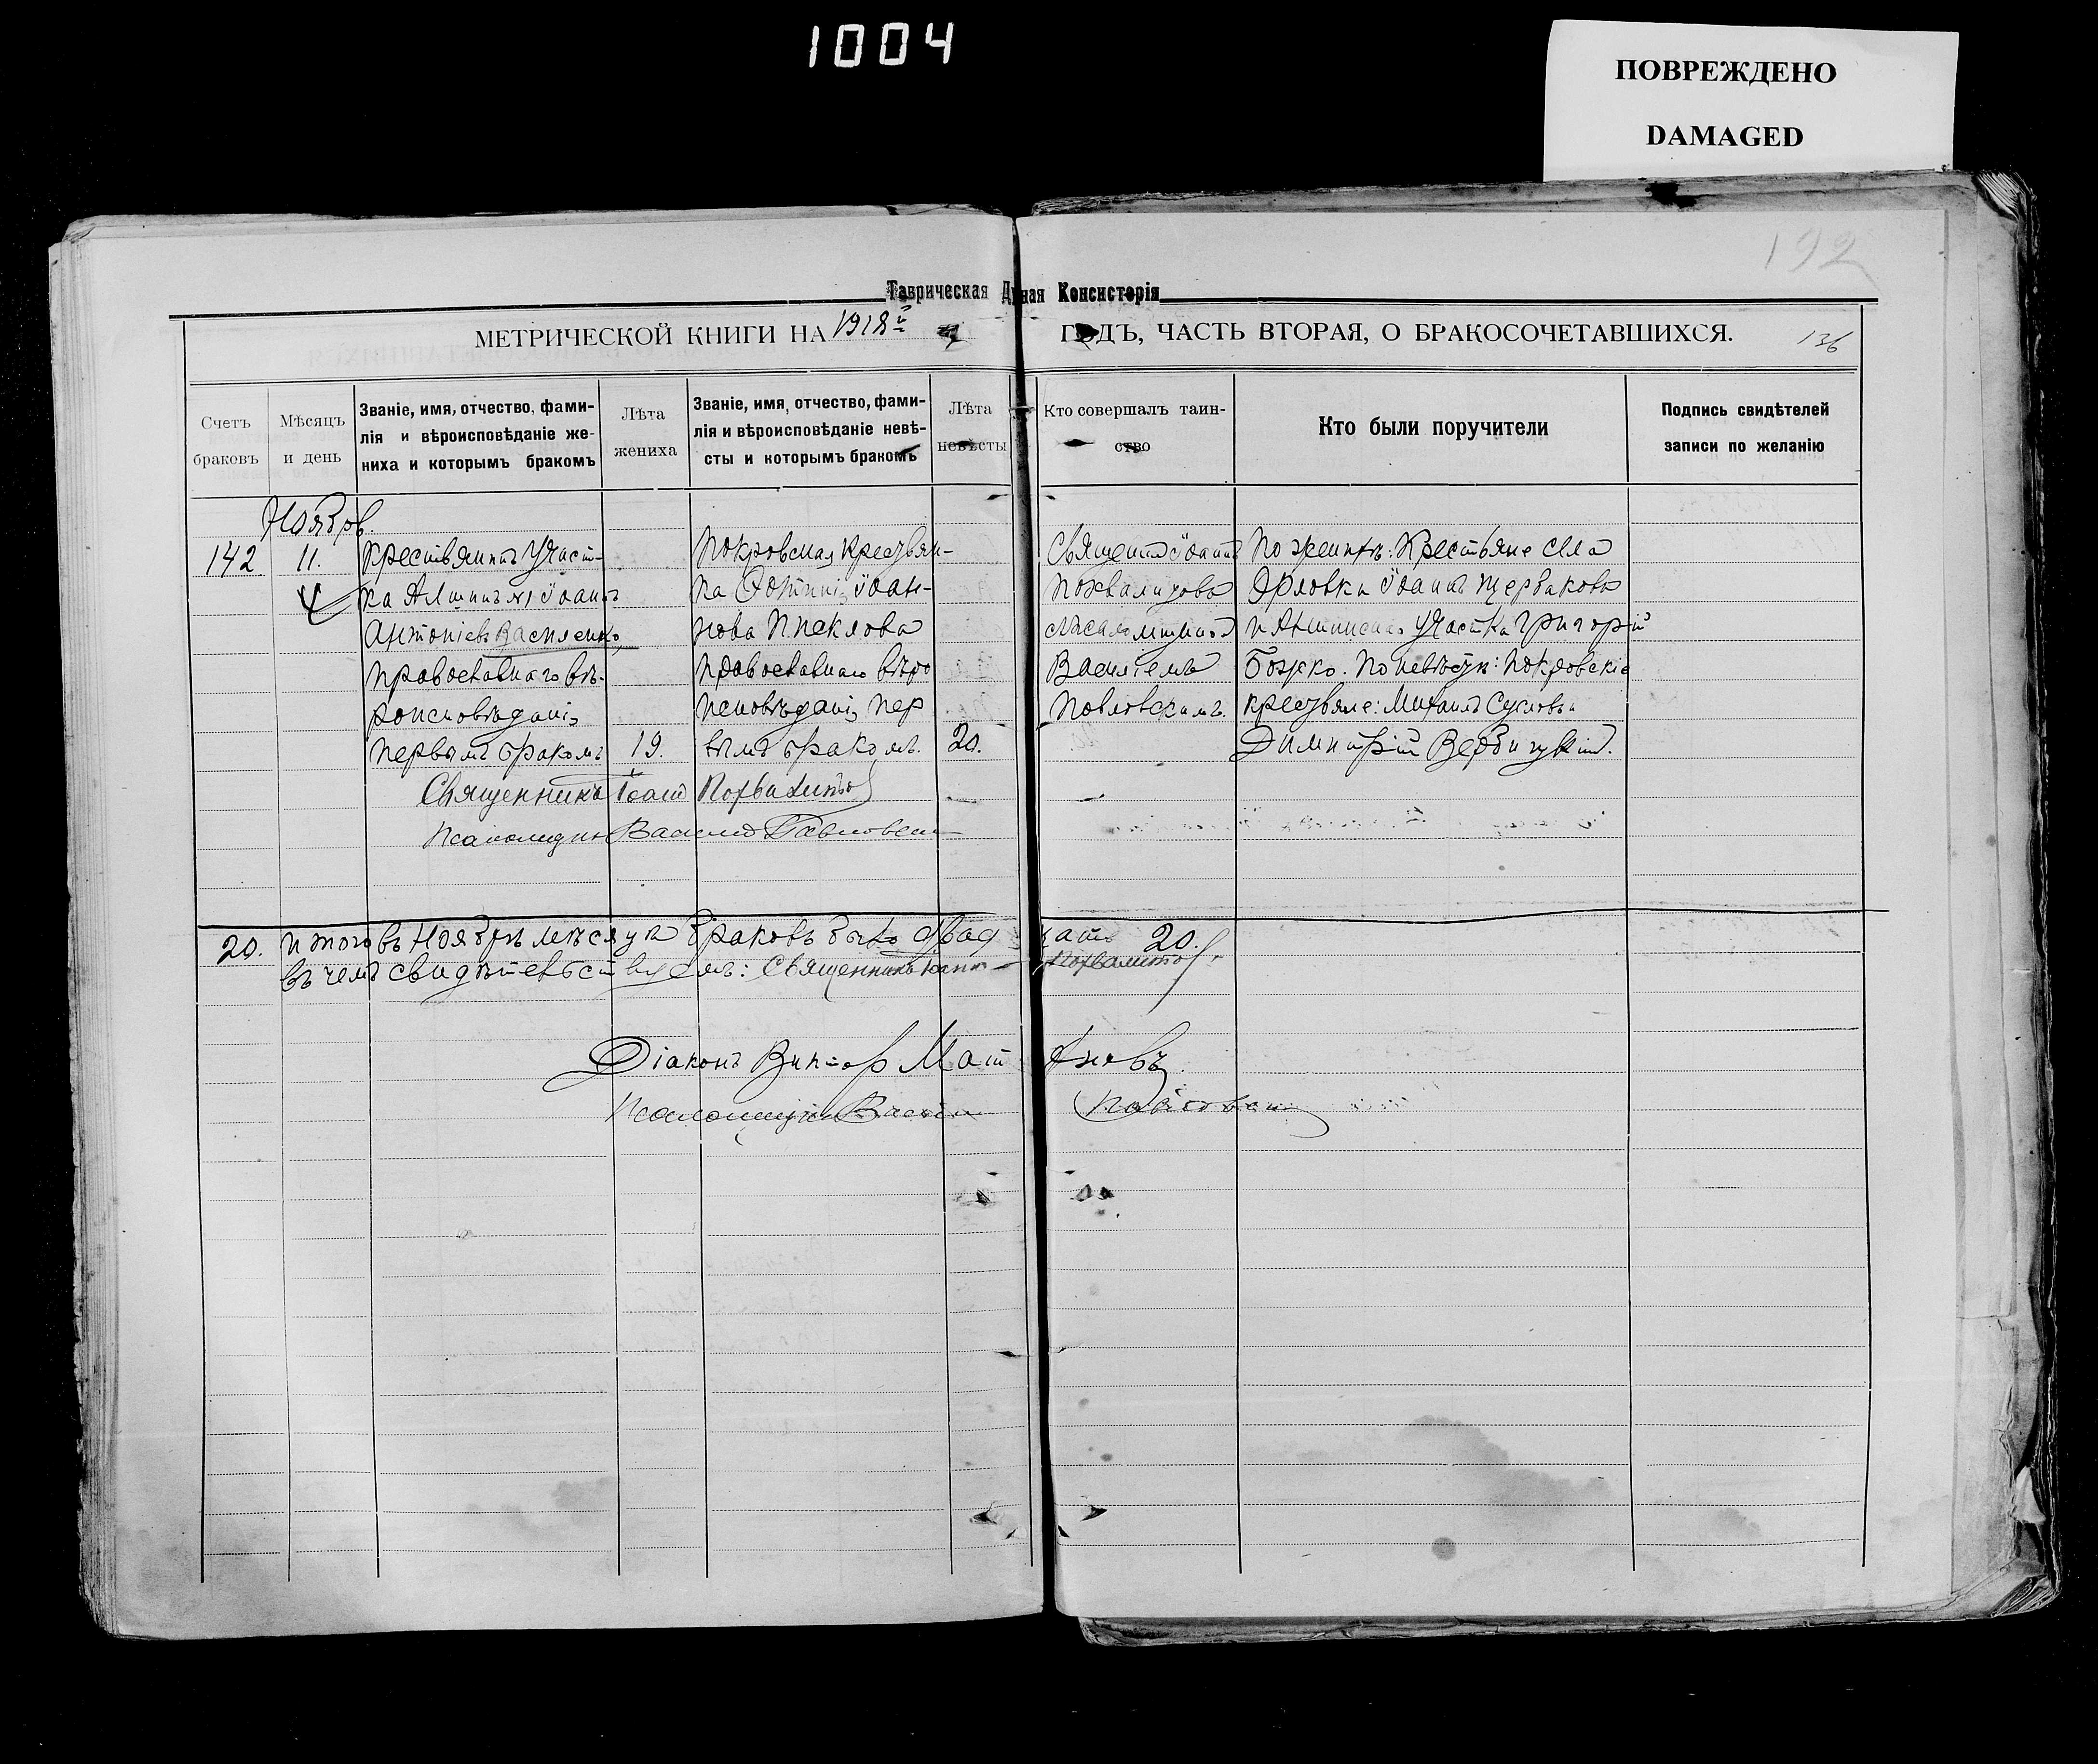 1004
ПОВРЕЖДЕНО
DAMAGED
192
Таврическая Дная Консисторія
МЕТРИЧЕСКОЙ КНИГИ НА 1918й ГОДЪ, ЧАСТЬ ВТОРАЯ, О БРАКОСОЧЕТАВШИХСЯ.
136
Счетъ
браковъ
Мѣсяцъ
и день
Званіе, имя, отчество, фами-
лія и вѣроисповѣданіе же-
ниха и которымъ бракомъ
Лѣта
жениха
Званіе, имя, отчество, фами-
лія и вѣроисповѣданіе невѣ-
сты и которымъ бракомъ
Лѣта
невѣсты
Кто совершалъ таин-
ство
Кто были поручители
Подпись свидѣтелей
записи по желанію
Ноябрь.
142
11.
Крестьянинъ Участ-
ка Іоаннъ
Антоніевъ Василенко,
православнаго вѣ-
роисповѣданія
первымъ бракомъ
19.
Покровская крестьян-
ка Іоан-
нова
православнаго вѣро
исповѣданія пер
вымъ бракомъ.
20.
Священник Іоаннъ
Похвалитовъ
Василіемъ
Павловскимъ.
По женихѣ: Крестьяне села
Орловки Іоаннъ Щербаковъ
и Участка Григорій
Божко. По невѣстѣ: Покровскіе
крестьяне: Михаилъ Сусловъ и
Димитрій Вербицкій.
Священникъ Іоанн Похвалитов
Псаломщик Василий Павловски
20. Итого въ Ноябрѣ мѣсяцѣ браковъ было двадцать 20.
въ чемъ свидѣтельствуемъ: Священникъ Іоаннъ Похвалитов.
Діаконъ Виктор
Псаломщикъ Василій Павловски